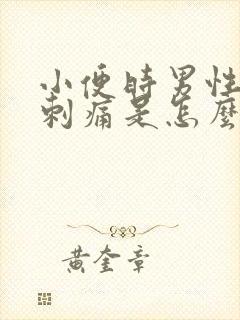 小便時男性
刺痛是怎麼
黃奎章